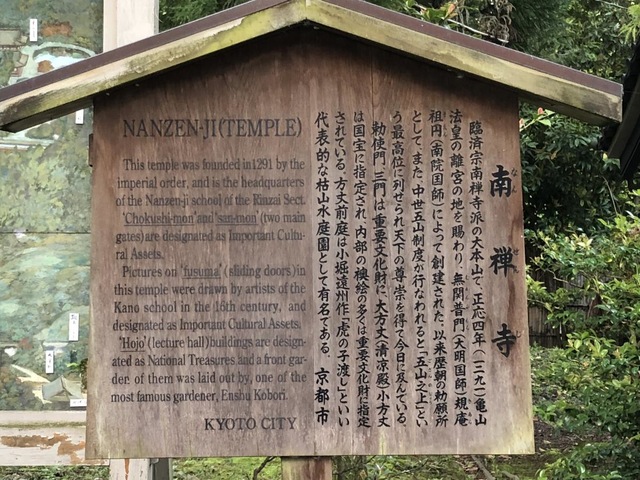 NANZEN-JI(TEMPLE)
This temple was founded in 1291 by the
imperial order, and is the headquarters
of the Nanzen-ji school of the Rinzai Sect.
'Chokushi-mon' and 'san-mon' (two main
gates) are designated as Important Cultur-
al Assets.
Pictures on 'fusuma' (sliding doors) in
this temple were drawn by artists of the
Kano school in the 16th century, and
designated as Important Cultural Assets.
'Hojo' (lecture hall) buildings are design-
ated as National Treasures and a front gar-
der of them was laid out by, one of the
most famous gardener, Enshu Kobori.
KYOTO CITY
南禅寺
なん ぜん じ
臨済宗南禅寺派の大本山で、正応四年(一二九一)亀山
法皇の離宮の地を賜わり、無関普門(大明国師)、規庵
祖円(南院国師)によって創建された。以来歴朝の勅願所
として、また、中世五山制度が行なわれると「五山之上」とい
う最高位に列せられ天下の尊崇を得て今日に及んでいる。
勅使門、三門は重要文化財に、大方丈(清涼殿)小方丈
は国宝に指定され、内部の襖絵の多くは重要文化財に指定
されている。方丈前庭は小堀遠州作「虎の子渡し」といい
代表的な枯山水庭園として有名である。
京都市